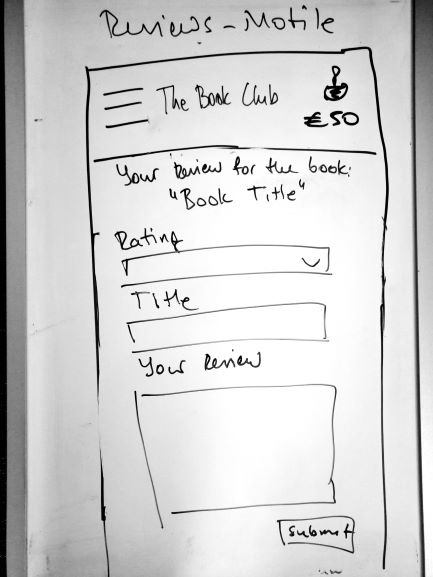 Reviews - Mobile
The Book Club
€50
Your Review for the book:
"Book Title"
Rating
Title
Your Review
Submit